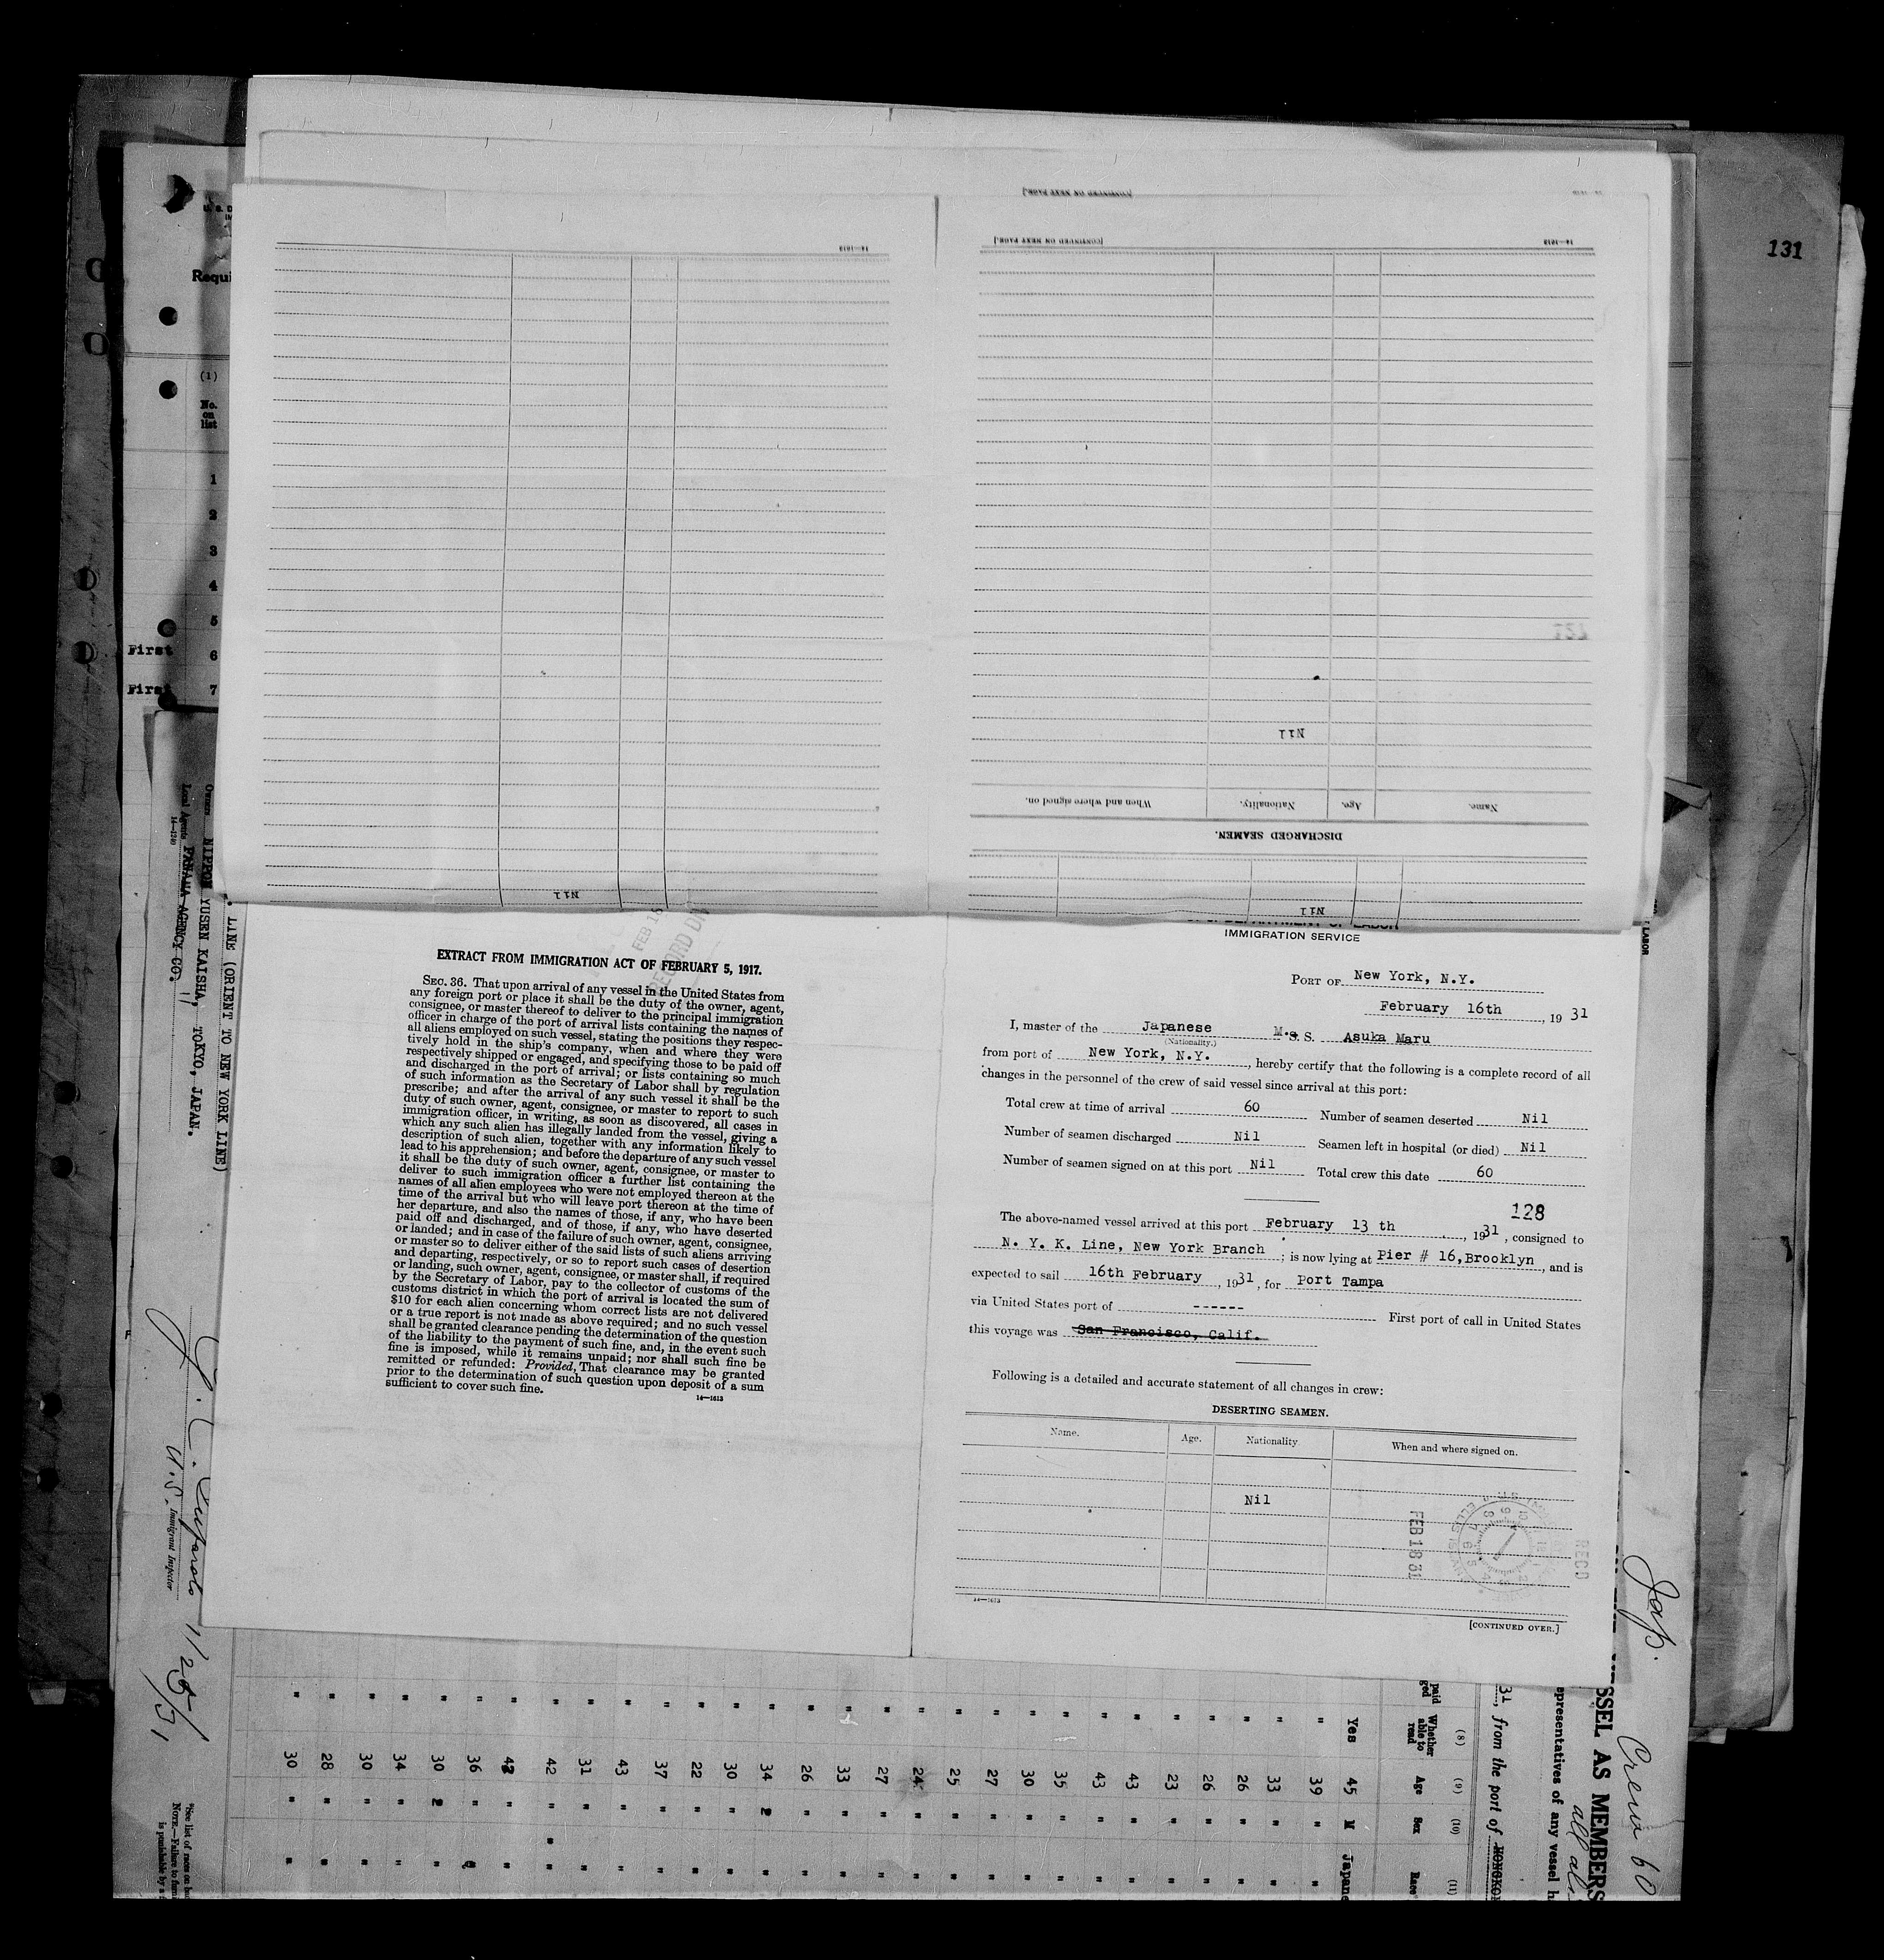 131
[CONTINUED ON NEXT PAGE.]
14—1613
[CONTINUED ON NEXT PAGE.]
14—1613
Requi
(1)
No.
on
list
1
2
3
4
5
First 6
First 7
Nil
Name. Age. Nationality. When and where signed on.
DISCHARGED SEAMEN.
Nil
Nil
Owners NIPPON YUSEN KAISHA, TOKYO, JAPAN.
Local Agents PANAMA AGENCY CO.
14—1240
LINE (ORIENT TO NEW YORK LINE)
U.S. Immigrant Inspector
EXTRACT FROM IMMIGRATION ACT OF FEBRUARY 5, 1917.
SEC. 36. That upon arrival of any vessel in the United States from
any foreign port or place it shall be the duty of the owner, agent,
consignee, or master thereof to deliver to the principal immigration
officer in charge of the port of arrival lists containing the names of
all aliens employed on such vessel, stating the positions they respec-
tively hold in the ship's company, when and where they were
respectively shipped or engaged, and specifying those to be paid off
and discharged in the port of arrival; or lists containing so much
of such information as the Secretary of Labor shall by regulation
prescribe; and after the arrival of any such vessel it shall be the
duty of such owner, agent, consignee, or master to report to such
immigration officer, in writing, as soon as discovered, all cases in
which any such alien has illegally landed from the vessel, giving a
description of such alien, together with any information likely to
lead to his apprehension; and before the departure of any such vessel
it shall be the duty of such owner, agent, consignee, or master to
deliver to such immigration officer a further list containing the
names of all alien employees who were not employed thereon at the
time of the arrival but who will leave port thereon at the time of
her departure, and also the names of those, if any, who have been
paid off and discharged, and of those, if any, who have deserted
or landed; and in case of the failure of such owner, agent, consignee,
or master so to deliver either of the said lists of such aliens arriving
and departing, respectively, or so to report such cases of desertion
or landing, such owner, agent, consignee, or master shall, if required
by the Secretary of Labor, pay to the collector of customs of the
customs district in which the port of arrival is located the sum of
$10 for each alien concerning whom correct lists are not delivered
or a true report is not made as above required; and no such vessel
shall be granted clearance pending the determination of the question
of the liability to the payment of such fine, and, in the event such
fine is imposed, while it remains unpaid; nor shall such fine be
remitted or refunded: Provided, That clearance may be granted
prior to the determination of such question upon deposit of a sum
sufficient to cover such fine.
14—1613
IMMIGRATION SERVICE
PORT OF New York, N.Y.
February 16th, 1931
I, master of the Japanese M.S. S. Asuka Maru
(Nationality.)
from port of New York, N.Y., hereby certify that the following is a complete record of all
changes in the personnel of the crew of said vessel since arrival at this port:
Total crew at time of arrival 60 Number of seamen deserted Nil
Number of seamen discharged Nil Seamen left in hospital (or died) Nil
Number of seamen signed on at this port Nil Total crew this date 60
128
The above-named vessel arrived at this port February 13 th, 1931, consigned to
N. Y. K. Line, New York Branch; is now lying at Pier # 16, Brooklyn, and is
expected to sail 16th February, 1931, for Port Tampa
via United States port of ------ First port of call in United States
this voyage was San Francisco, Calif.
Following is a detailed and accurate statement of all changes in crew:
DESERTING SEAMEN.
Name. Age. Nationality When and where signed on.
Nil
FEB 18 31
REC'D
14—1613
[CONTINUED OVER.]
Jap.
Crew 60
SSEL AS MEMBERS
epresentatives of any vessel h
31, from the port of
(8) (9) (10) (11)
Whether able to read Age Sex Race
Yes 45 M Japane
" 39 " "
" 33 " "
" 26 " "
" 26 " "
" 23 " "
" 43 " "
" 43 " "
" 35 " "
" 30 " "
" 27 " "
" 25 " "
" 24 " "
" 27 " "
" 33 " "
" 26 " "
" 34 " "
" 30 " "
" 22 " "
" 37 " "
" 43 " "
" 31 " "
" 42 " "
" 42 " "
" 36 " "
" 30 " "
" 34 " "
" 30 " "
" 28 " "
" 30 " "